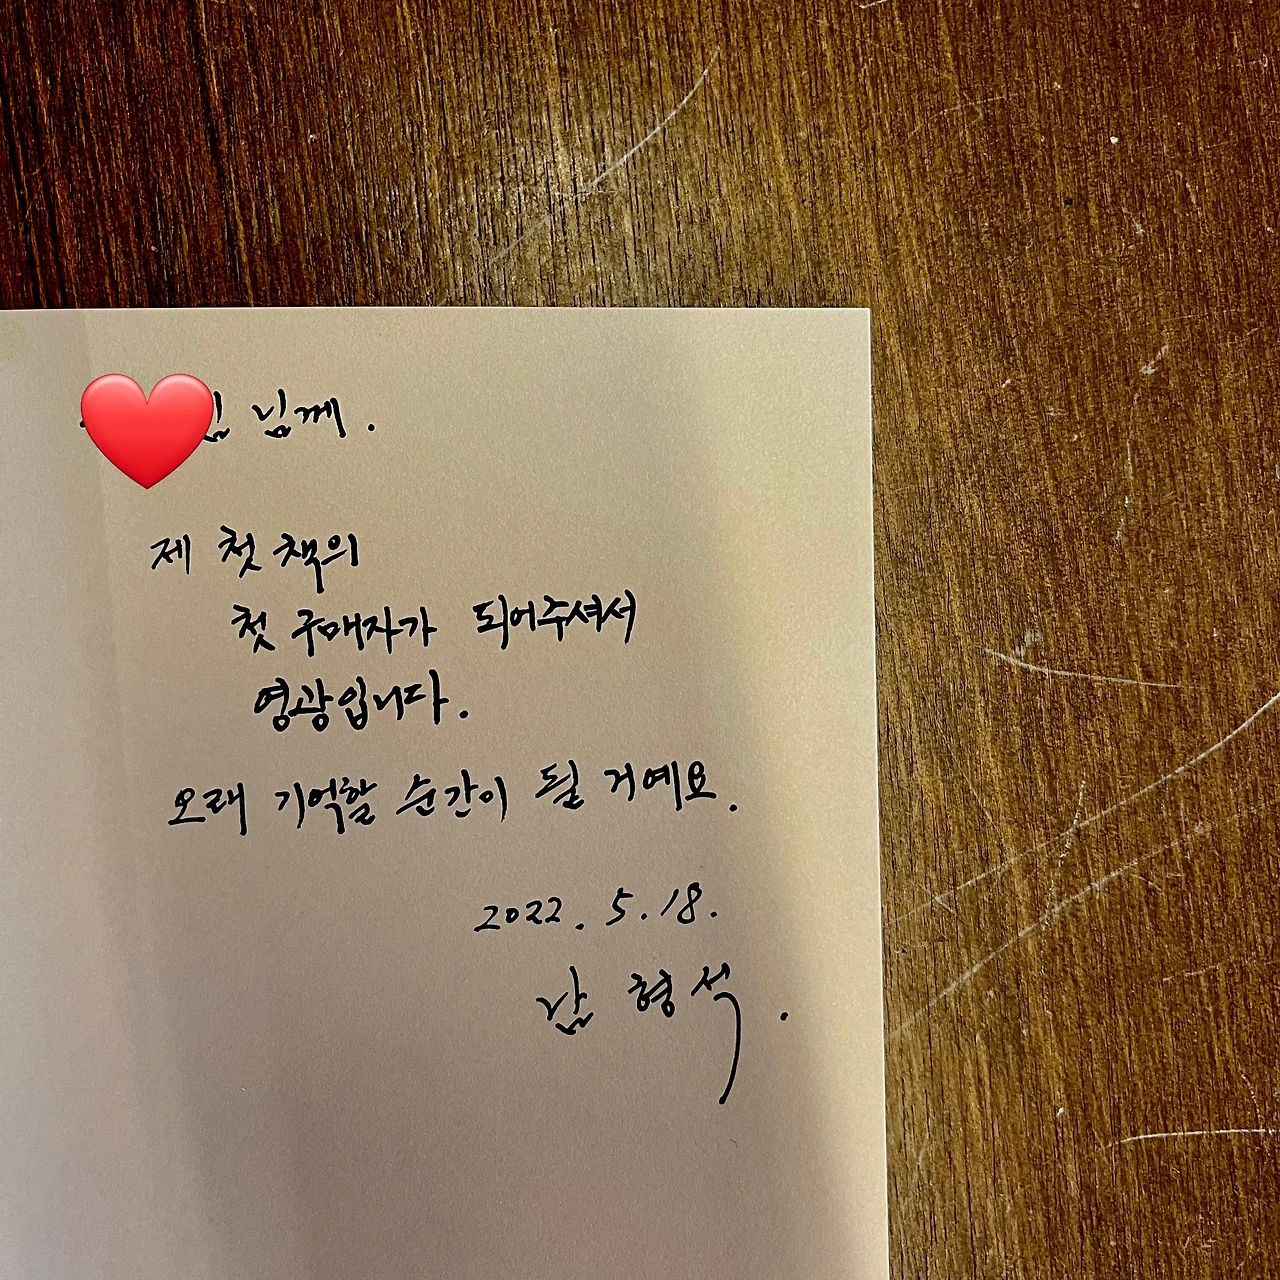 님께.
제 첫 책의
첫 구매자가 되어주셔서
영광입니다.
오래 기억할 순간이 될 거예요.
2022. 5. 18.
남형석.